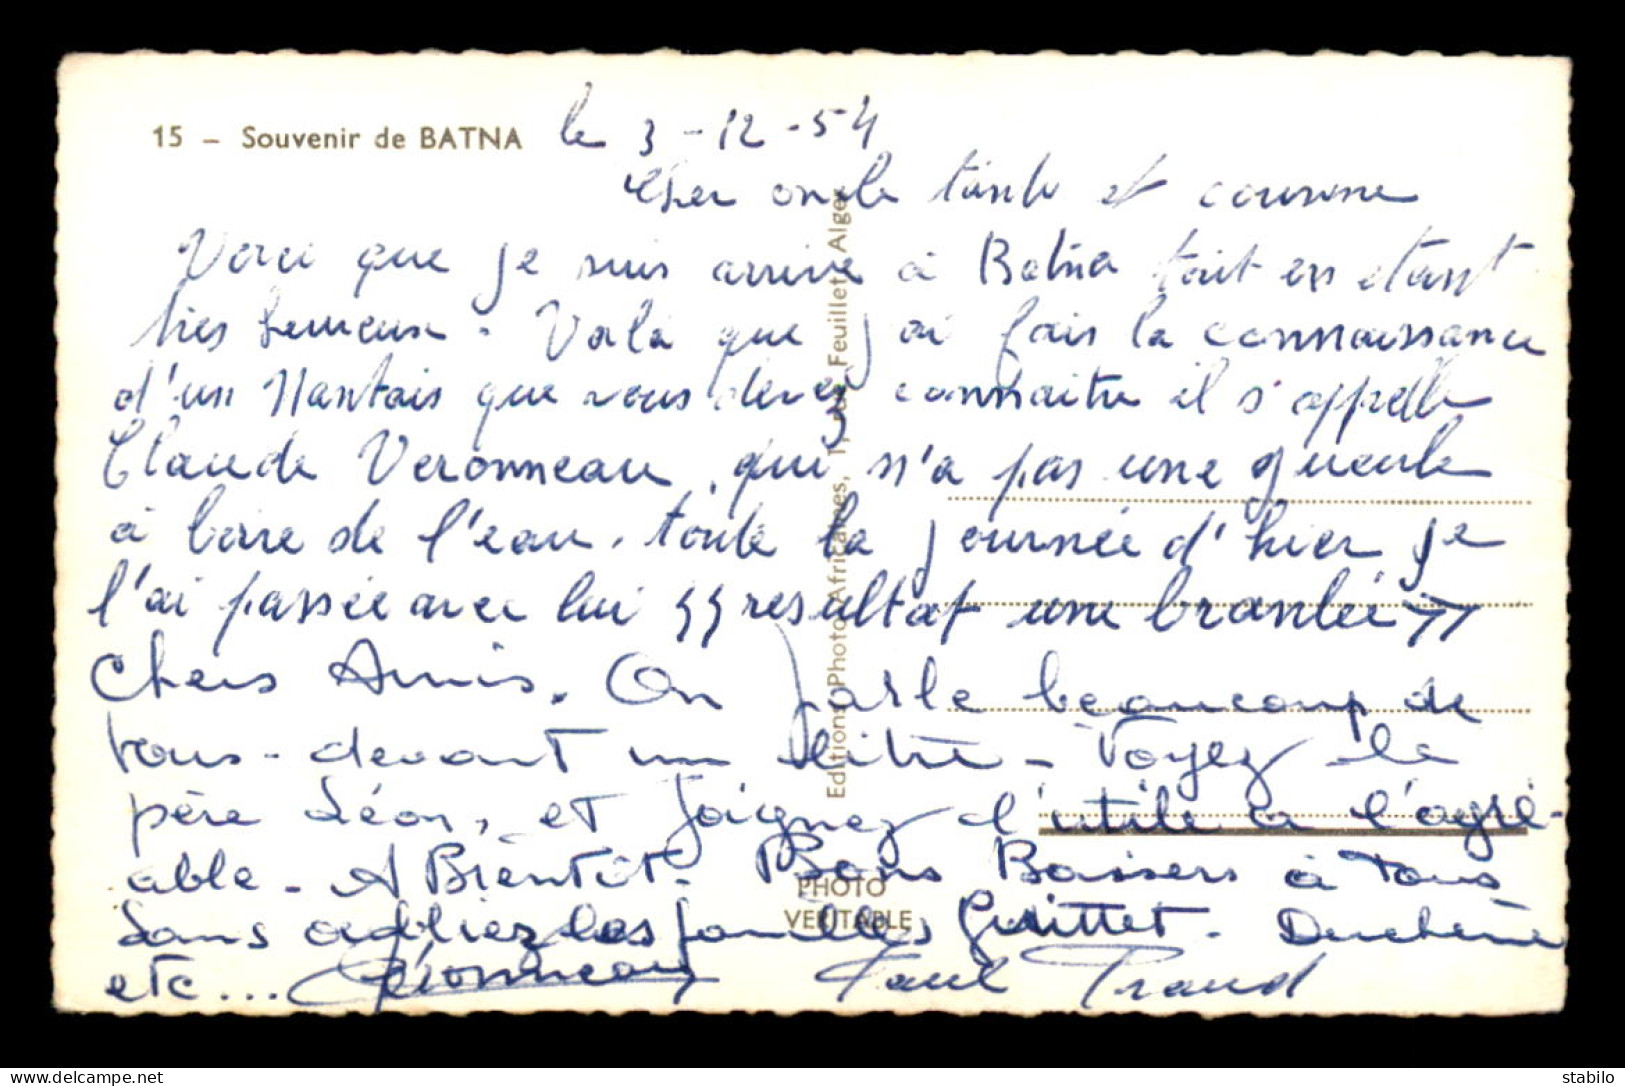 15 – Souvenir de BATNA
le 3-12-54
Cher oncle tante et cousine
Voici que je suis arrive à Batna tout en etant
tres heureux. Voilà que j'ai fais la connaissance
d'un Nantais que vous devez connaitre il s'appelle
Claude Veronneau, qui n'a pas une gueule
à boire de l'eau. toute la journée d'hier je
l'ai passée avec lui résultat une branlée
Chers Amis. On parle beaucoup de
vous - devant un litre - Voyez le
père Léon, et joignez l'utile a l'agré-
able - A Bientôt. Bons Baisers à tous
Sans oubliez les familles Guittet.
etc... Veronneau Paul Praud
Editions Photo-Africaines, Feuillet, Alger
PHOTO
VERITABLE
stabilo